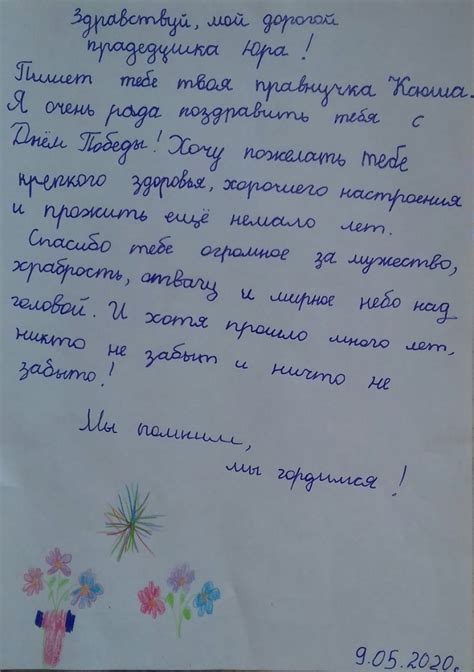 Здравствуй, мой дорогой
прадедушка Юра!
Пишет тебе твоя правнучка Ксюша.
Я очень рада поздравить тебя с
Днём Победы! Хочу пожелать тебе
крепкого здоровья, хорошего настроения
и прожить ещё немало лет.
Спасибо тебе огромное за мужество,
храбрость, отвагу и мирное небо над
головой. И хотя прошло много лет,
никто не забыт и ничто не
забыто!
Мы помним,
мы гордимся!
9.05.2020.